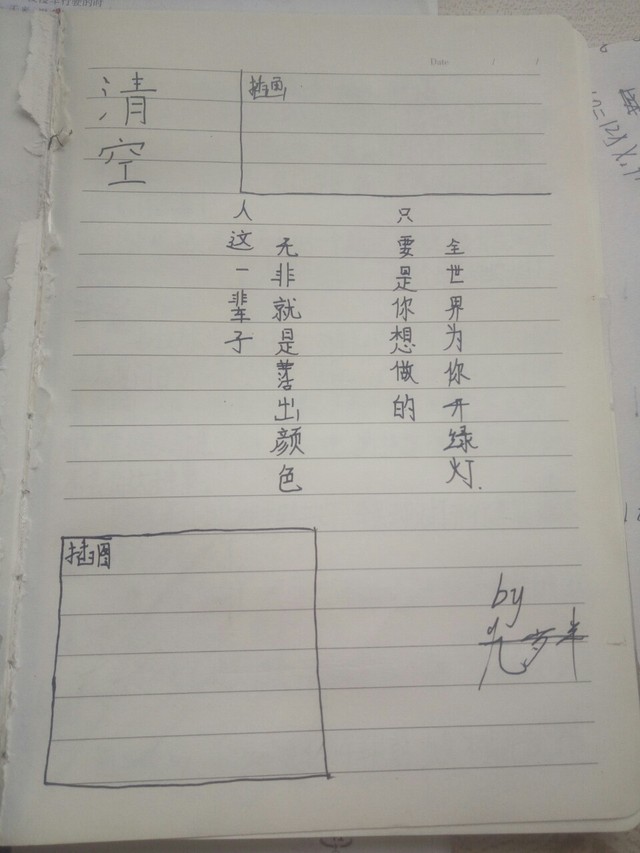 Date / /
清空
插画
人这一辈子
无非就是落出颜色
只要是你想做的
全世界为你开绿灯.
插图
by